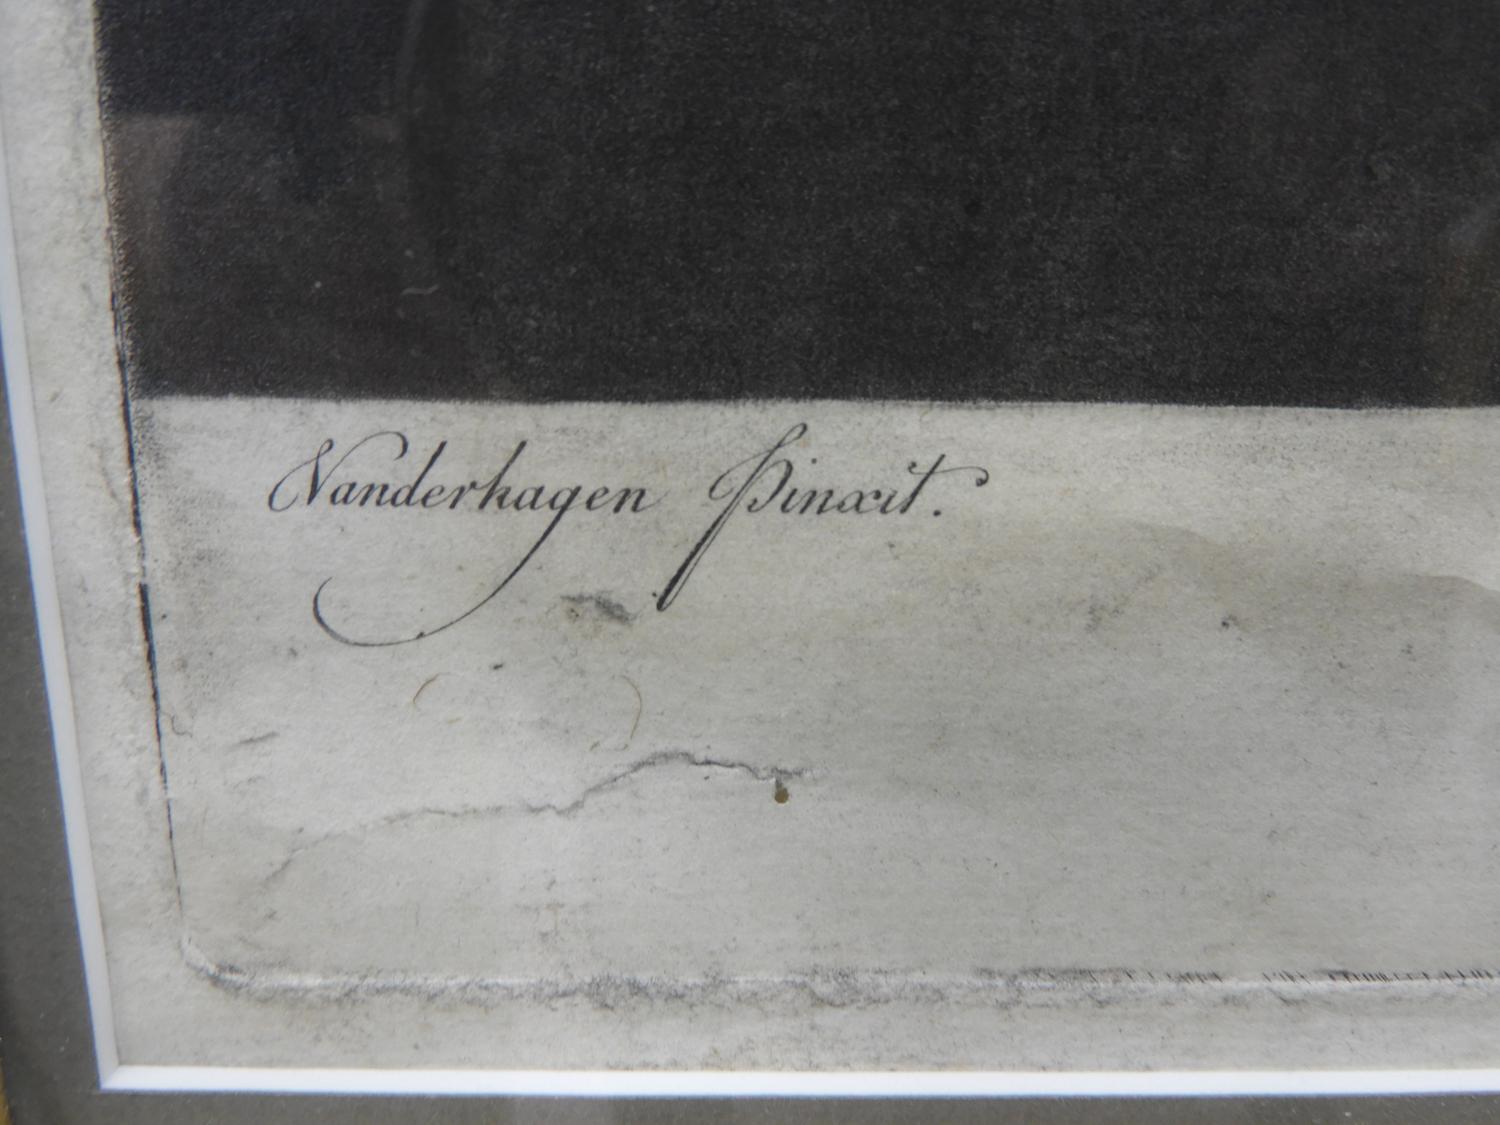 Vanderhagen Pinxit.